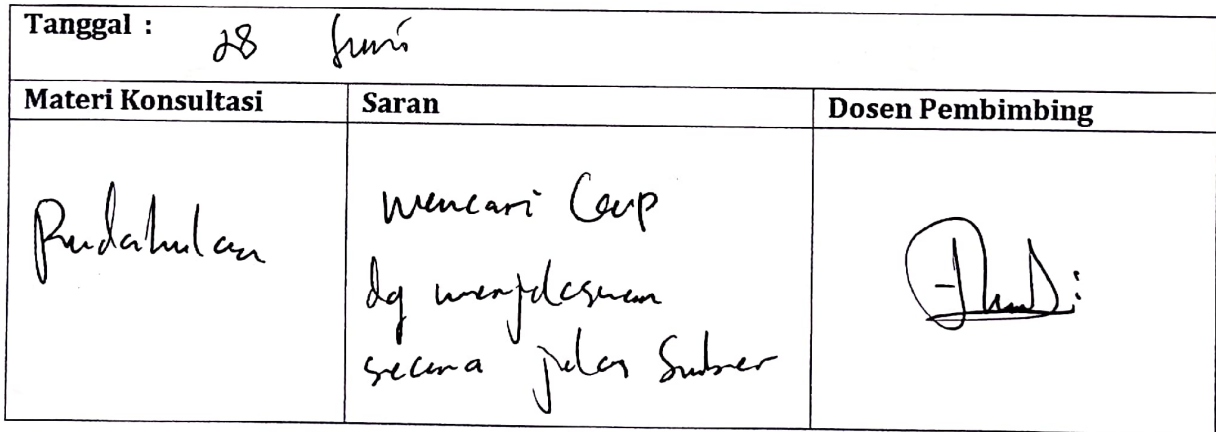 Tanggal : 28 Juni
Materi Konsultasi Saran Dosen Pembimbing
Pendahuluan
mencari Gap
dg menjelaskan
secara jelas Sumber